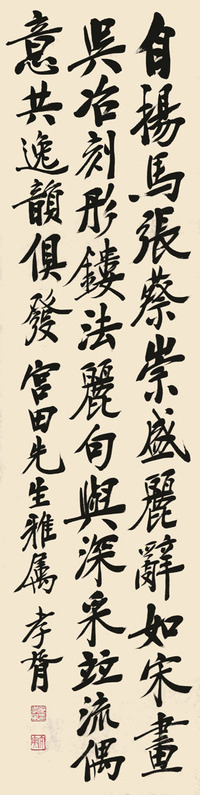 自揚馬張蔡崇盛麗辭如宋畫
吳冶刻形鏤法麗句與深采竝流偶
意共逸韻俱發 宮田先生雅属 孝胥